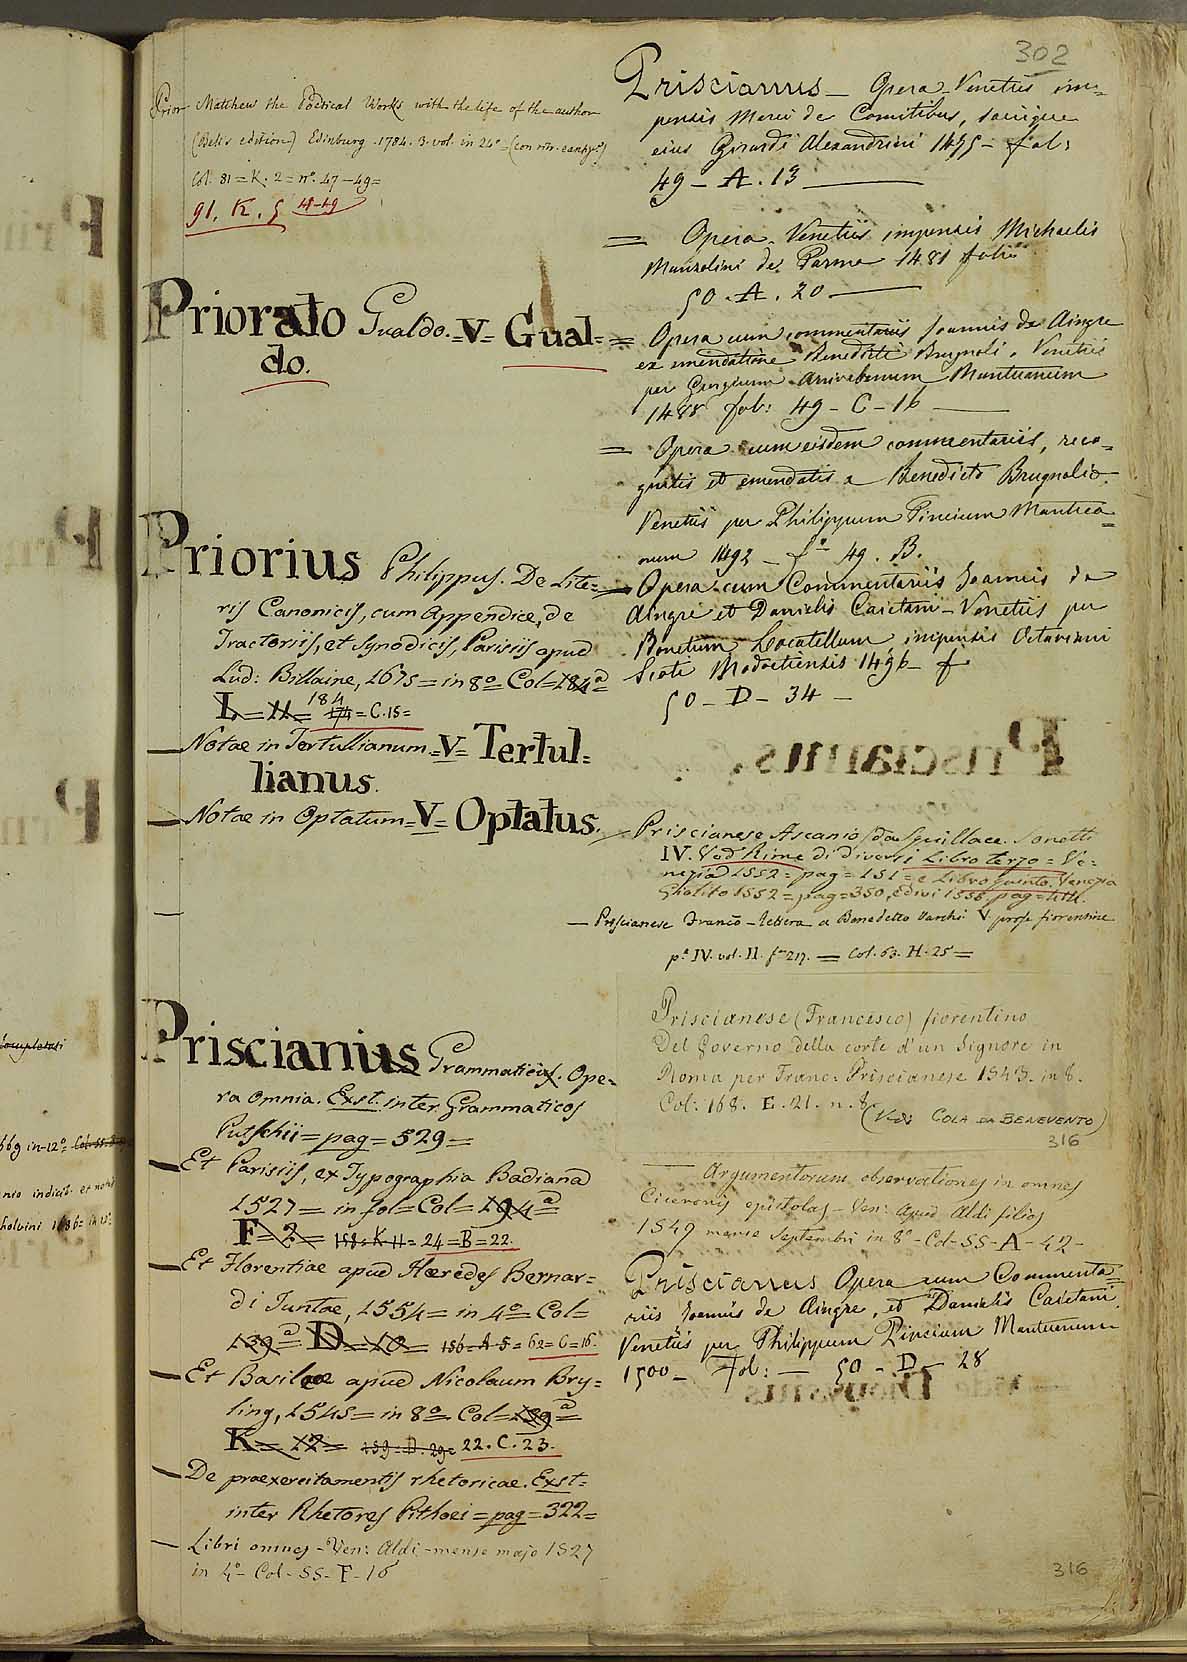 302
Prior Matthew the Poetical Works with the life of the author
(Bell's edition) Edinburg. 1784. 3. vol. in 24°
Col: 81 = K. 2 = n°. 47 - 49 =
91. K. 5 48-49
Priorato Gualdo. = V = Gual=
do.
Priorius Philippus. De Lite=
ris Canonicis, cum Appendice, de
Tractoriis, et Synodicis, Parisiis apud
Lud: Billaine, 1675 = in 8° = Col = 184ª =
L = 11 = 184 174 = C. 15 =
Notae in Tertullianum. = V = Tertul=
lianus.
Notae in Optatum = V = Optatus.
Priscianius Grammaticus. Ope=
ra omnia. Exst. inter Grammaticos
Putschii = pag = 529 =
Et Parisiis, ex Typographia Badiana
1527 = in fol = Col = 194ª =
F = 2 = 158 = K 11 = 24 = B = 22.
Et Florentiae apud Haeredes Bernar=
di Juntae, 1554 = in 4° = Col =
139ª = D = 10 = 156 = A 5 = 62 = C = 16.
Et Basileae apud Nicolaum Bry=
ling, 1545 = in 8° = Col = 139ª =
K = 12 = 159 = D. 29 = 22. C. 23.
De praexercitamentis rhetoricae. Exst=
inter Rhetores Pithoei = pag = 322 =
Libri omnes - Ven: Aldi - mense majo 1527
in 4° - Col - SS - F - 16
Priscianus - Opera - Venetiis im=
pensis Marci de Comitibus, sociique
eius Girardi Alexandrini 1475 - fol:
49 - A. 13
= Opera - Venetiis impensis Michaelis
Manzolini de Parma 1481 folio
50 - A. 20
= Opera cum commentariis Joannis de Aingre
ex emendatione Benedicti Brugnoli. Venetiis
per Georgium Arrivabenum Mantuanum
1488 fol: 49 - C - 16
= Opera cum eisdem commentariis, reco=
gnitis et emendatis a Benedicto Brugnolio.
Venetiis per Philippum Pincium Mantua=
num 1492 - f° 49. B.
= Opera cum Commentariis Joannis de
Aingre et Danielis Caietani - Venetiis per
Bonetum Locatellum impensis Octaviani
Scoti Modoetiensis 1496 - f
50 - D - 34 -
Priscianese Ascanio da Squillace. Sonetti
IV. Ved Rime di diversi Libro terzo = Ve=
nezia 1552 = pag = 151 = e Libro quinto. Venezia
Gholito 1552 = pag = 350, ed ivi 1555 pag =
Priscianese Franc° - lettera a Benedetto Varchi V. prose fiorentine
pª. IV. vol. II. f° 217. = Col. 63. H. 25 =
Priscianese (Francesco) fiorentino
Del Governo della corte d'un Signore in
Roma per Franc: Priscianese 1543. in 8.
Col: 168. E. 21. n. 8
(Vedi COLA DA BENEVENTO)
316
Argumentorum observationes in omnes
Ciceronis epistolas - Ven: apud Aldi filios
1549 mense Septembri in 8° - Col - SS - A - 42 -
Priscianus Opera cum Commenta=
riis Joannis de Aingre, et Danielis Caietani.
Venetiis per Philippum Pincium Mantuanum
1500 - Fol: - 50 - D - 28
316